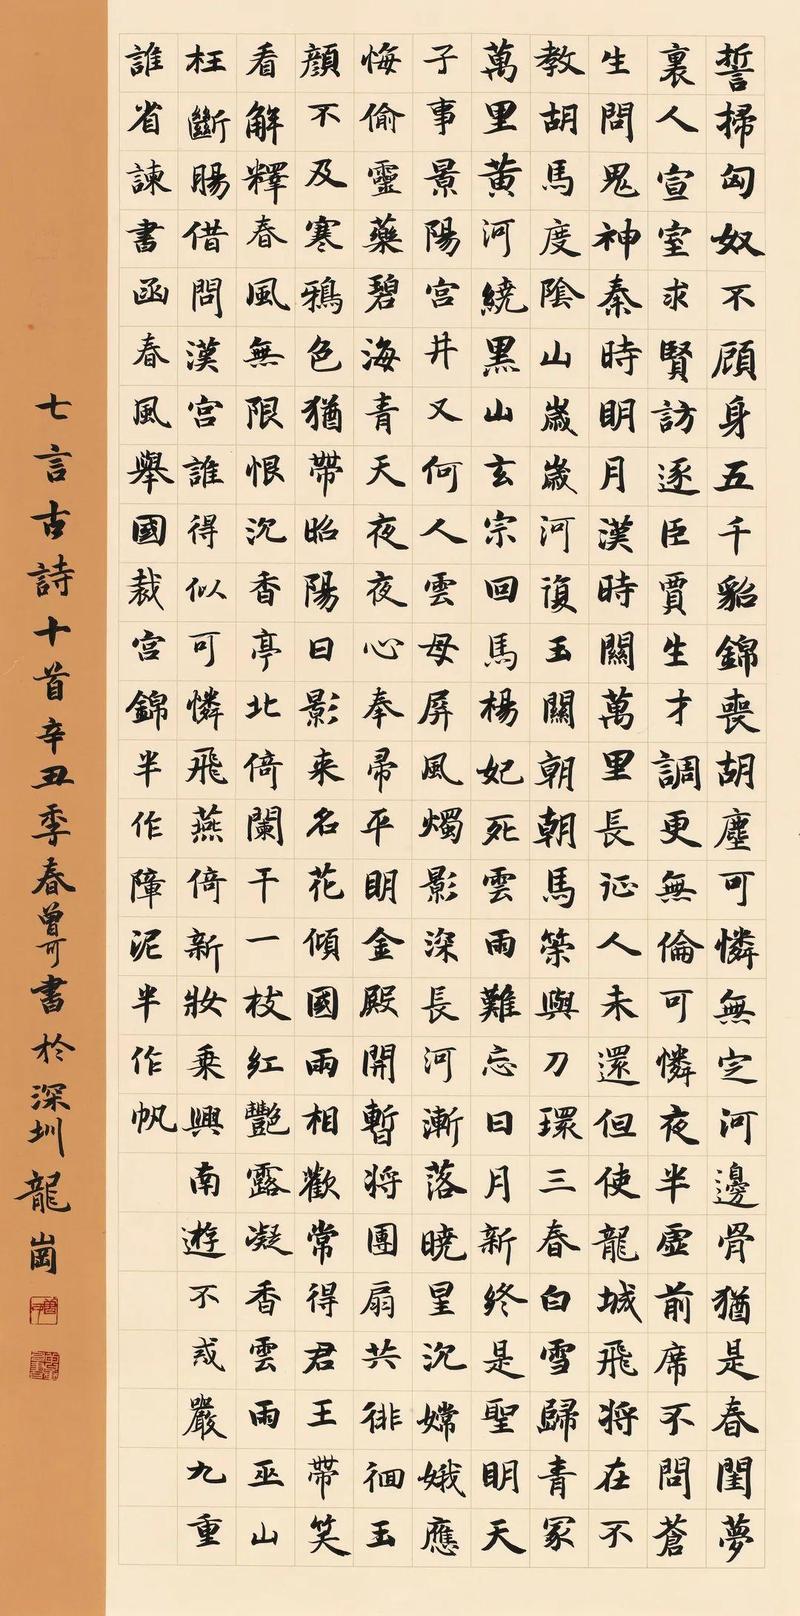 誓掃匈奴不顧身五千貂錦喪胡塵可憐無定河邊骨猶是春閨夢
裏人宣室求賢訪逐臣賈生才調更無倫可憐夜半虛前席不問蒼
生問鬼神秦時明月漢時關萬里長征人未還但使龍城飛將在不
教胡馬度陰山歲歲河復玉關朝朝馬築與刀環三春白雪歸青冢
萬里黃河繞黑山玄宗回馬楊妃死雲雨難忘日月新終是聖明天
子事景陽宮井又何人雲母屏風燭影深長河漸落曉星沉嫦娥應
悔偷靈藥碧海青天夜夜心奉帚平明金殿開暫將團扇共徘徊玉
顏不及寒鴉色猶帶昭陽日影来名花傾國兩相歡常得君王帶笑
看解釋春風無限恨沉香亭北倚闌干一枝紅豔露凝香雲雨巫山
枉斷腸借問漢宮誰得似可憐飛燕倚新妝乘興南遊不戒嚴九重
誰省諫書函春風舉國裁宮錦半作障泥半作帆
七言古詩十首辛丑季春曾可書於深圳龍崗